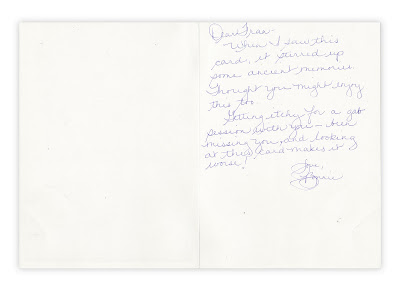 Dear Fran-
When I saw this
card, it stirred up
some ancient memories.
Thought you might enjoy
this too.
Getting itchy for a gab
session with you - been
missing you, and looking
at this card makes it
worse!
Love,